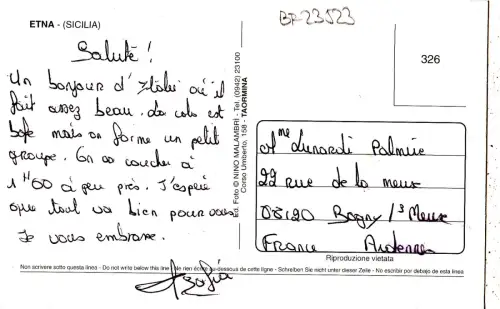 ETNA - (SICILIA)
BP23523
326
Saluté !
Un bonjour d'Italie où il
fait assez beau. La colo est
bofe mais on forme un petit
groupe. On se couche à
1H00 à peu près. J'espère
que tout va bien pour vous
Je vous embrasse.
Ed. Foto © NINO MALAMBRI - Tel. (0942) 23100
Corso Umberto, 158 - TAORMINA
Mme Lunardi Palmire
22 rue de la meuse
08120 Bogny /s Meuse
France Ardennes
Riproduzione vietata
Non scrivere sotto questa linea - Do not write below this line - Ne rien écrire au-dessous de cette ligne - Schreiben Sie nicht unter dieser Zeile - No escribir por debajo de esta linea
Sofia